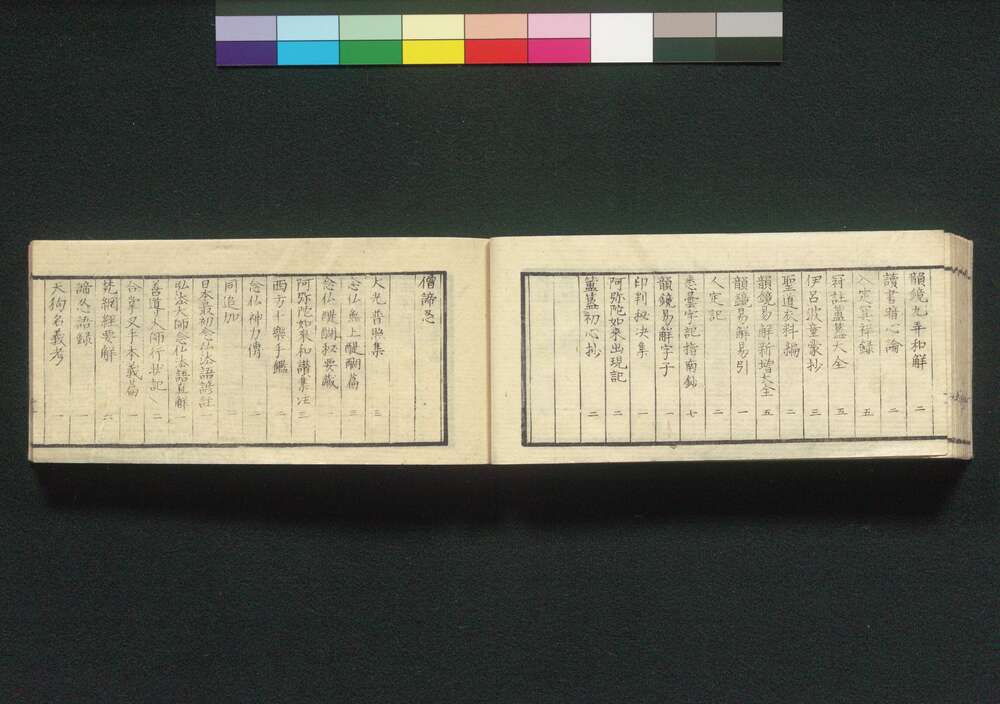 韻鏡九弄和解 二
讀書 心論 二
入定
冠註 大全 四
伊呂波童蒙抄 三
聖道衣料編 二
韻鏡易解新増大全 五
韻鏡易解易引 一
人定記 二
悉曇字記指南鈔 七
韻鏡易解字子 一
印判秘决集 一
阿弥陀如来出現記 二
初心抄 二
僧諦忍
大光普照集 三
念仏無上醍醐篇 三
念仏醍醐秘要蔵 一
阿弥陀如来和讃集註 三
西方 楽手鑑 二
念仏神力傳 二
同追加 二
日本最初念仏法語諺註 一
弘法大師念仏法語直解 一
善導大師行状記 二
合掌叉手本義篇 一
梵網經要解 六
諦忍語録 二
天狗名義考 一